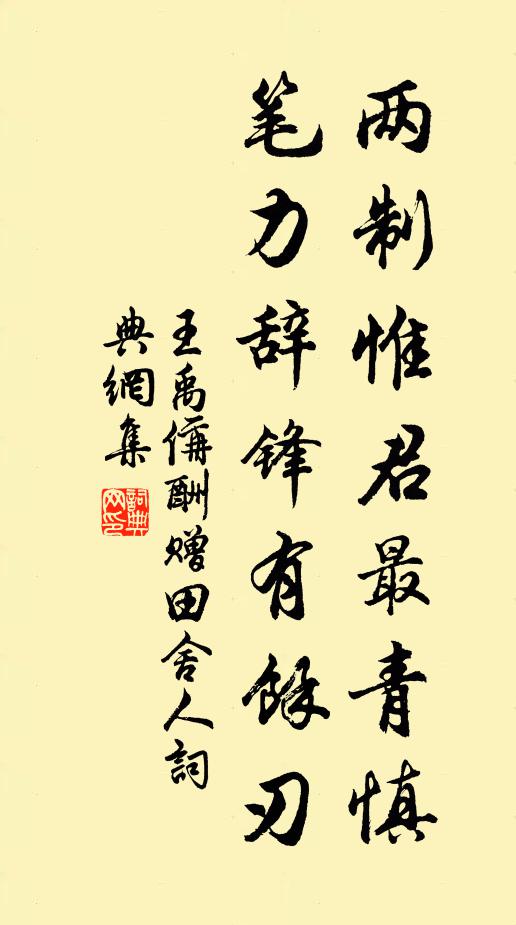 两制惟君最青慎
笔力辞锋有馀刃
王禹偁酬赠田舍人詞
典網集
詞典网印